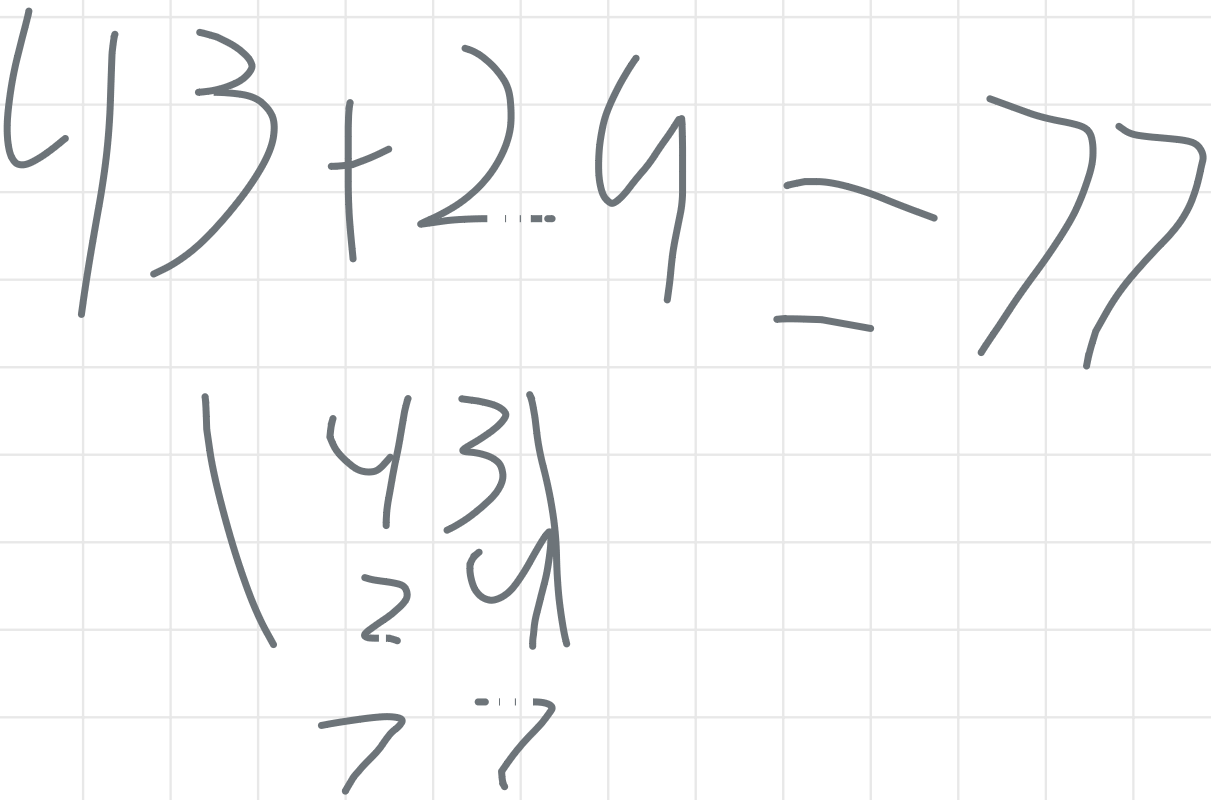 43+24=77
| 43 |
24
77